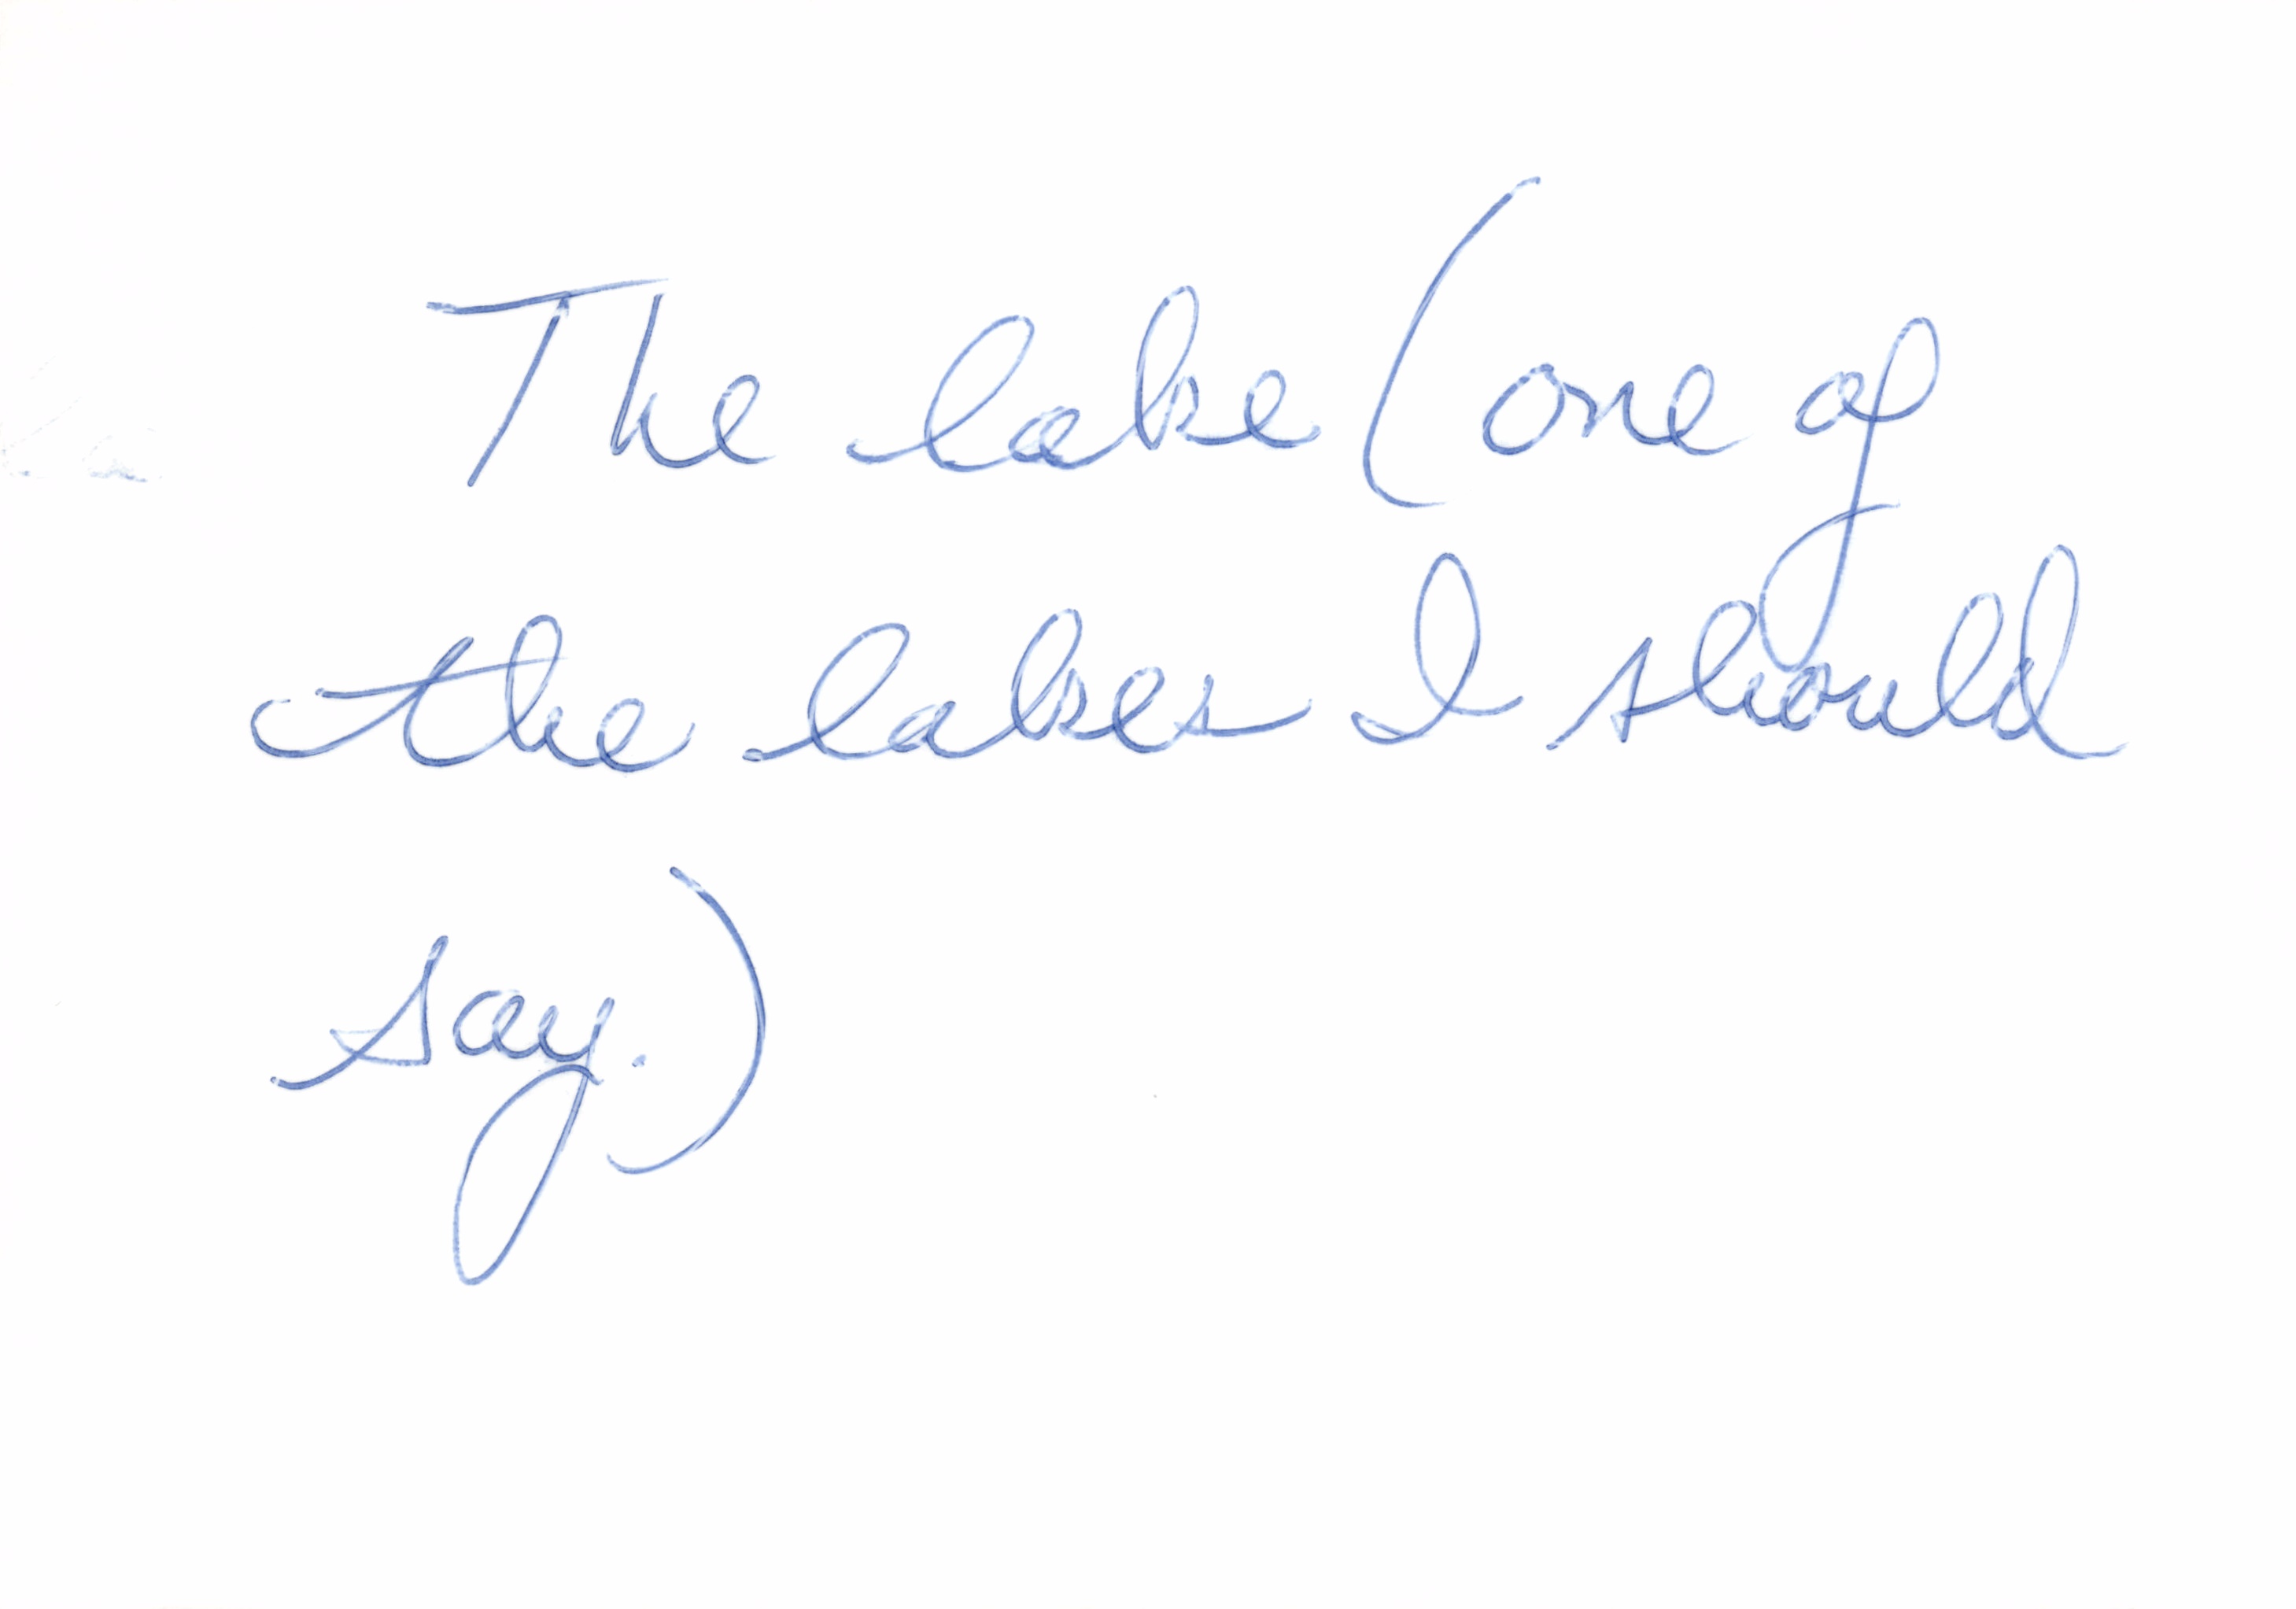 The lake (one of
the lakes I should
say.)